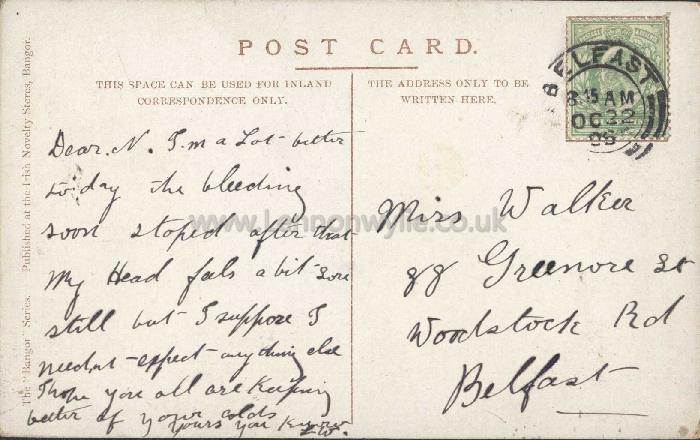 POST CARD.
THIS SPACE CAN BE USED FOR INLAND
CORRESPONDENCE ONLY.
THE ADDRESS ONLY TO BE
WRITTEN HERE.
BELFAST
8.15 AM
OC 22
The "Bangor" Series. Published at the Irish Novelty Stores, Bangor.
Dear N. I'm a Lot better
to day the bleeding
soon stoped after that
My Head feels a bit Sore
still but I suppose I
neednt expect anything else
I hope you all are Keeping
better of your colds
Yours you Know
Miss Walker
88 Greenore St
Woodstock Rd
Belfast
www.Lennonwylie.co.uk